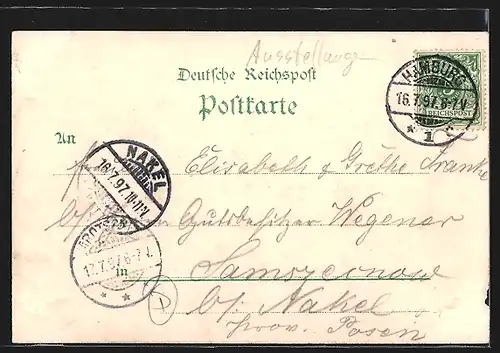 Ausstellungs-
Deutsche Reichspost
Postkarte
HAMBURG
16.7.97. 6-7V.
* 1 *
REICHSPOST
An
NAKEL
(NETZE)
16/7.97. 10-11N.
Elisabeth & Grethe Franke
b/ Gutsbesitzer Wegener
17.7.97. 6-7V.
* *
in
b/ Nakel
Prov. Posen
1